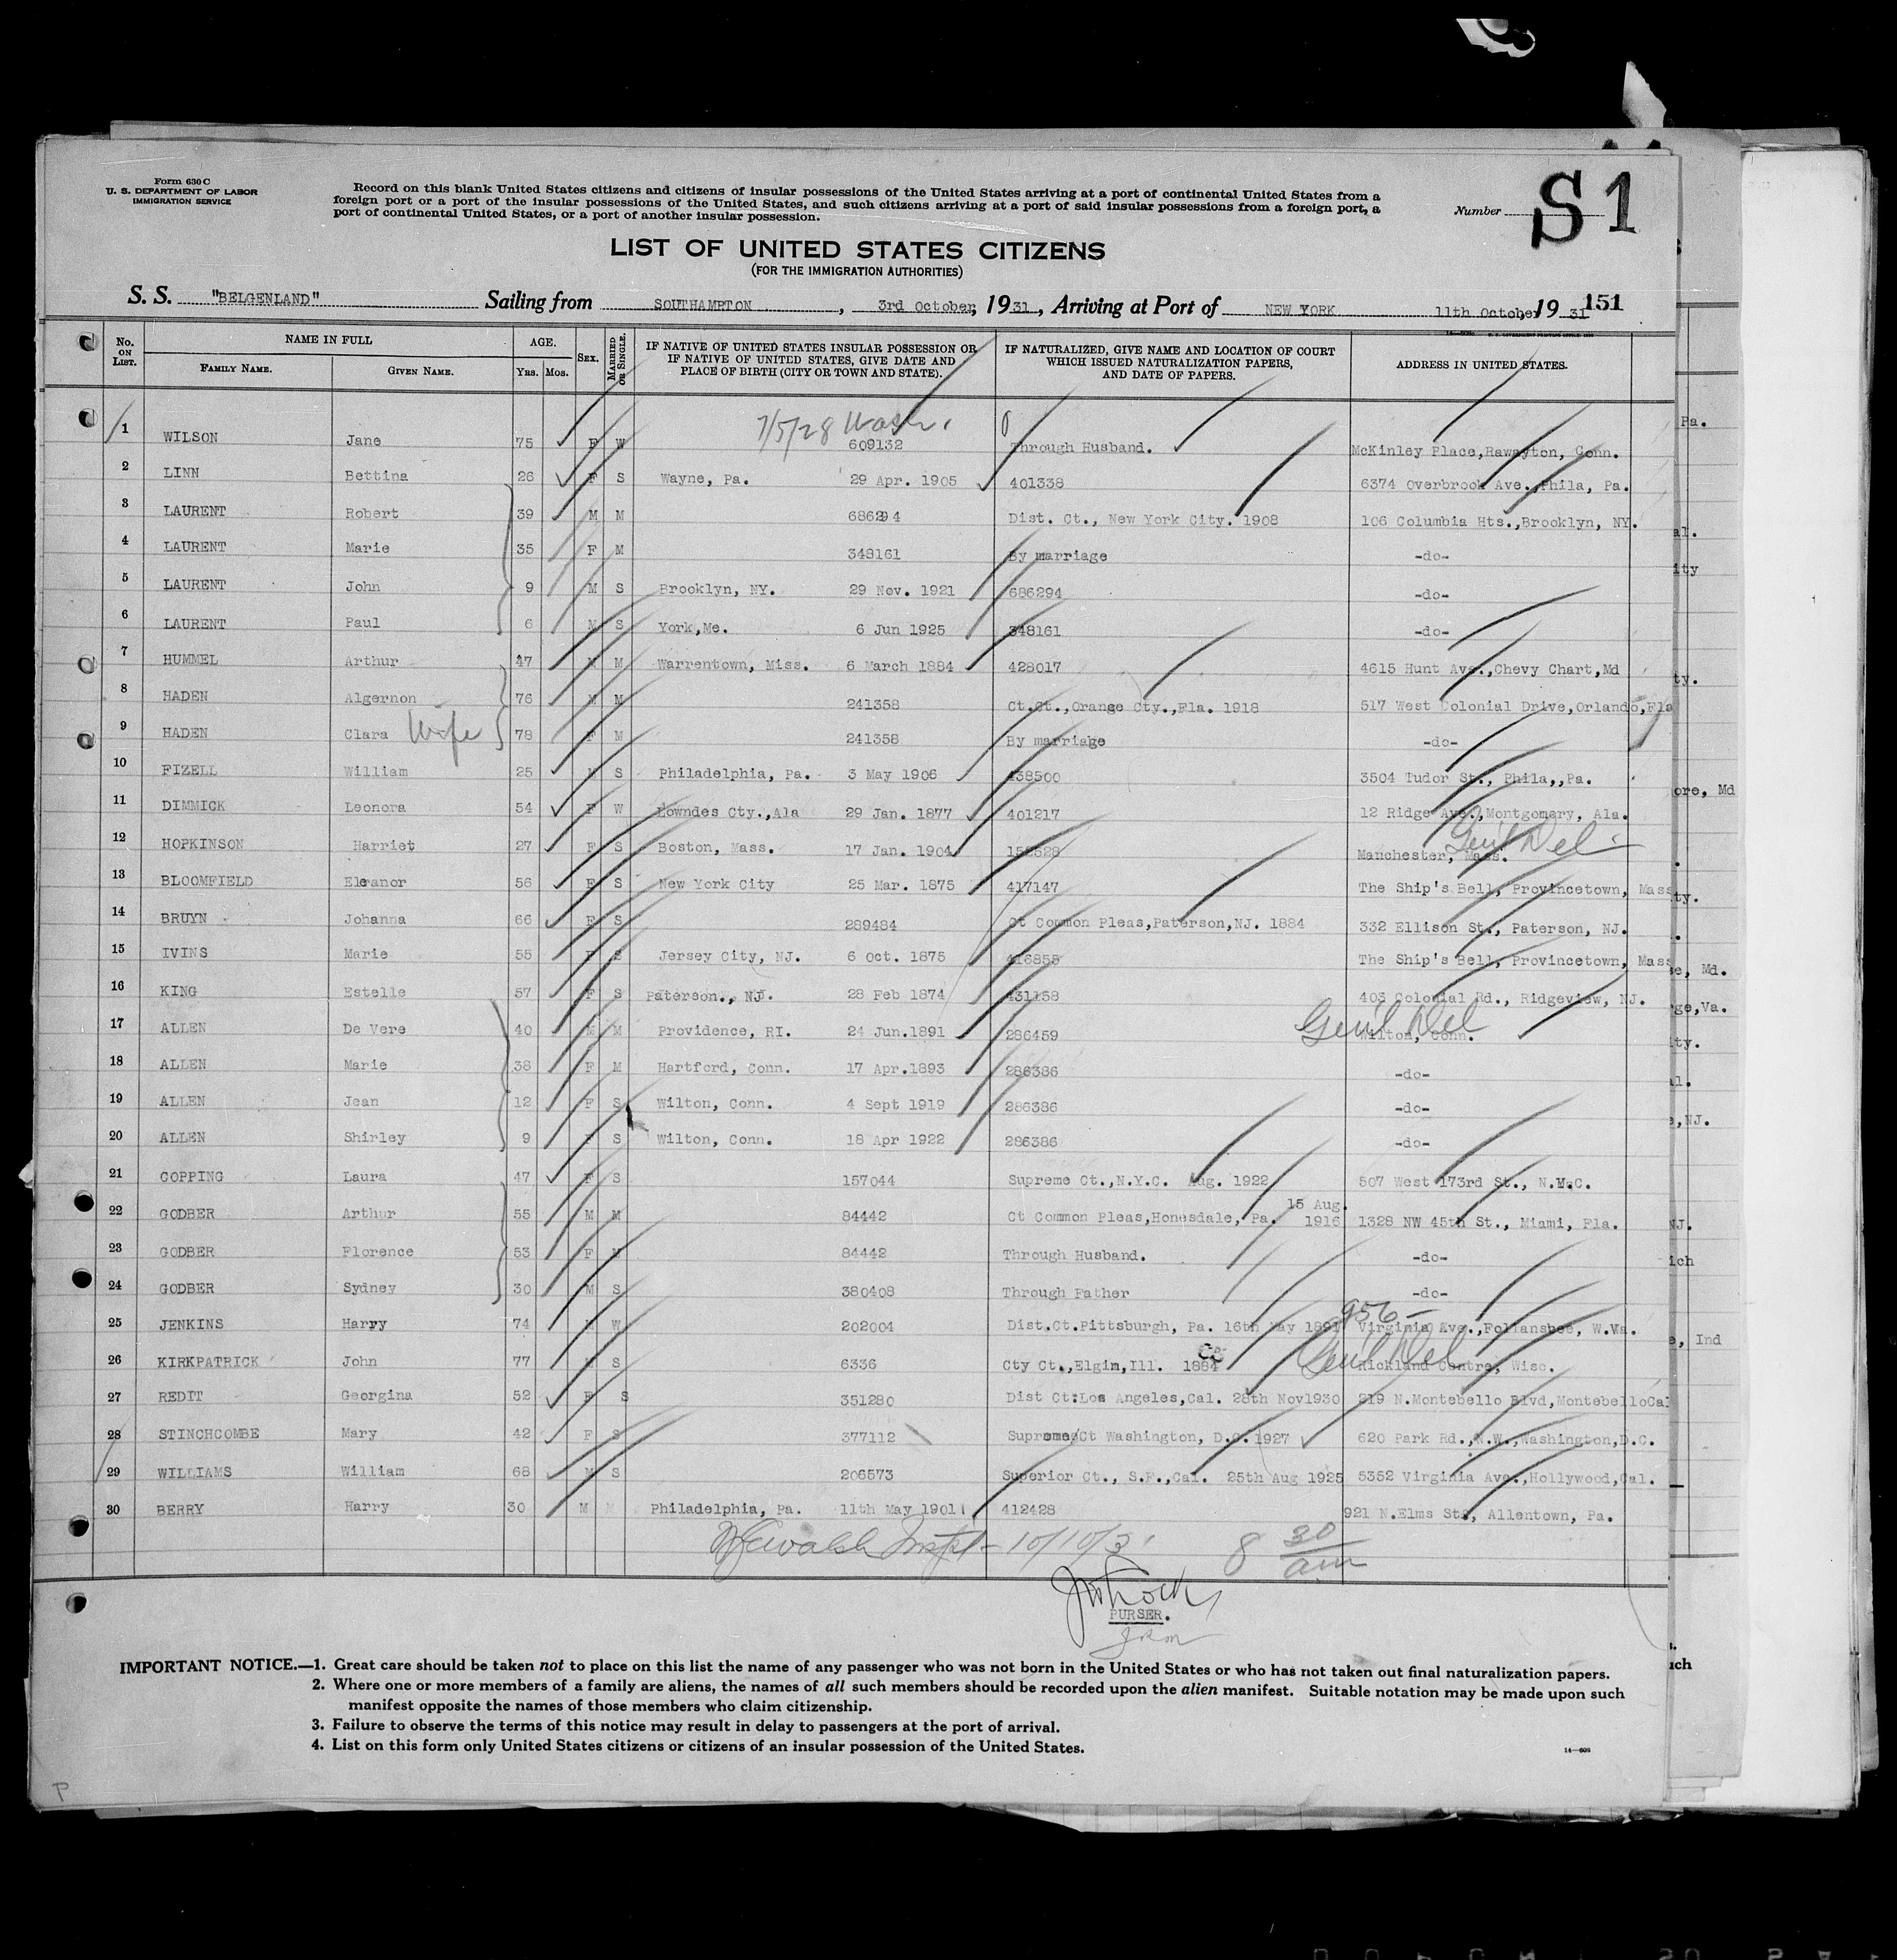 Form 630 C
U. S. DEPARTMENT OF LABOR
IMMIGRATION SERVICE
Record on this blank United States citizens and citizens of insular possessions of the United States arriving at a port of continental United States from a
foreign port or a port of the insular possessions of the United States, and such citizens arriving at a port of said insular possessions from a foreign port, a
port of continental United States, or a port of another insular possession.
Number S1
LIST OF UNITED STATES CITIZENS
(FOR THE IMMIGRATION AUTHORITIES)
S. S. "BELGENLAND" Sailing from SOUTHAMPTON , 3rd October, 1931, Arriving at Port of NEW YORK 11th October 1931 151
No. ON LIST. NAME IN FULL FAMILY NAME. GIVEN NAME. AGE. Yrs. Mos. SEX. MARRIED OR SINGLE. IF NATIVE OF UNITED STATES INSULAR POSSESSION OR IF NATIVE OF UNITED STATES, GIVE DATE AND PLACE OF BIRTH (CITY OR TOWN AND STATE). IF NATURALIZED, GIVE NAME AND LOCATION OF COURT WHICH ISSUED NATURALIZATION PAPERS, AND DATE OF PAPERS. ADDRESS IN UNITED STATES.
7/5/28 Wash.
1 WILSON Jane 75 F W 609132 Through Husband. McKinley Place,Rawayton, Conn.
2 LINN Bettina 26 F S Wayne, Pa. 29 Apr. 1905 401338 6374 Overbrook Ave.,Phila, Pa.
3 LAURENT Robert 39 M M 686294 Dist. Ct., New York City. 1908 106 Columbia Hts.,Brooklyn, NY.
4 LAURENT Marie 35 F M 348161 By marriage -do-
5 LAURENT John 9 M S Brooklyn, NY. 29 Nov. 1921 686294 -do-
6 LAURENT Paul 6 M S York,Me. 6 Jun 1925 348161 -do-
7 HUMMEL Arthur 47 M M Warrentown, Miss. 6 March 1884 428017 4615 Hunt Ave.,Chevy Chart,Md
8 HADEN Algernon 76 M M 241358 Ct.Ct.,Orange Cty.,Fla. 1918 517 West Colonial Drive,Orlando,Fla
9 HADEN Clara Wife 78 F M 241358 By marriage -do-
10 FIZELL William 25 M S Philadelphia, Pa. 3 May 1906 438500 3504 Tudor St., Phila,,Pa.
11 DIMMICK Leonora 54 F W Lowndes Cty.,Ala 29 Jan. 1877 401217 12 Ridge Ave.,Montgomery, Ala.
12 HOPKINSON Harriet 27 F S Boston, Mass. 17 Jan. 1904 Manchester, Mass. Gen'l Del
13 BLOOMFIELD Eleanor 56 F S New York City 25 Mar. 1875 417147 The Ship's Bell, Provincetown, Mass
14 BRUYN Johanna 66 F S 289484 Ct Common Pleas,Paterson,NJ. 1884 332 Ellison St., Paterson, NJ.
15 IVINS Marie 55 F S Jersey City, NJ. 6 Oct. 1875 416855 The Ship's Bell, Provincetown, Mass
16 KING Estelle 57 F S Paterson., NJ. 28 Feb 1874 431158 403 Colonial Rd., Ridgeview, NJ.
17 ALLEN De Vere 40 M M Providence, RI. 24 Jun.1891 286459 Gen'l Del Wilton, Conn.
18 ALLEN Marie 38 F M Hartford, Conn. 17 Apr.1893 286386 -do-
19 ALLEN Jean 12 F S Wilton, Conn. 4 Sept 1919 286386 -do-
20 ALLEN Shirley 9 F S Wilton, Conn. 18 Apr 1922 286386 -do-
21 COPPING Laura 47 F S 157044 Supreme Ct.,N.Y.C. Aug. 1922 507 West 173rd St., N.Y.C.
22 GODBER Arthur 55 M M 84442 Ct Common Pleas,Honesdale, Pa. 15 Aug. 1916 1328 NW 45th St., Miami, Fla.
23 GODBER Florence 53 F M 84442 Through Husband. -do-
24 GODBER Sydney 30 M S 380408 Through Father -do-
25 JENKINS Harry 74 M W 202004 Dist.Ct.Pittsburgh, Pa. 16th May 1891 956- Virginia Ave.,Follansbee, W.Va.
26 KIRKPATRICK John 77 M S 6336 Cty Ct.,Elgin,Ill. 1884 Gen'l Del Richland Centre, Wisc.
27 REDIT Georgina 52 F S 351280 Dist Ct:Los Angeles,Cal. 28th Nov1930 219 N.Montebello Blvd,MontebelloCal
28 STINCHCOMBE Mary 42 F S 377112 Supreme Ct Washington, D.C. 1927 620 Park Rd.,N.W.,Washington,D.C.
29 WILLIAMS William 68 M S 206573 Superior Ct., S.F.,Cal. 25th Aug 1925 5352 Virginia Ave.,Hollywood,Cal.
30 BERRY Harry 30 M M Philadelphia, Pa. 11th May 1901 412428 921 N.Elms St., Allentown, Pa.
Walsh Inspt - 10/10/31 8 30 am
PURSER.
IMPORTANT NOTICE.—1. Great care should be taken not to place on this list the name of any passenger who was not born in the United States or who has not taken out final naturalization papers.
2. Where one or more members of a family are aliens, the names of all such members should be recorded upon the alien manifest. Suitable notation may be made upon such
manifest opposite the names of those members who claim citizenship.
3. Failure to observe the terms of this notice may result in delay to passengers at the port of arrival.
4. List on this form only United States citizens or citizens of an insular possession of the United States.